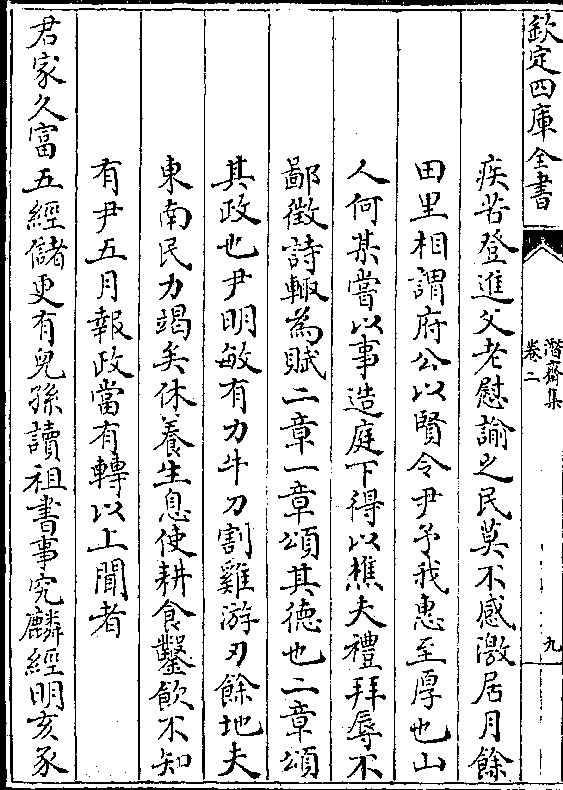 欽定四庫全書
潛齋集
卷二
九
疾苦登進父老慰諭之民莫不感激居月餘
田里相謂府公以賢令尹予我惠至厚也山
人何某嘗以事造庭下得以樵夫禮拜辱不
鄙徵詩輙為賦二章一章頌其徳也二章頌
其政也尹明敏有力牛刀割雞游刃餘地夫
東南民力竭矣休養生息使耕食鑿飲不知
有尹五月報政當有轉以上聞者
君家久富五經儲更有兒孫讀祖書事究麟經明亥豕